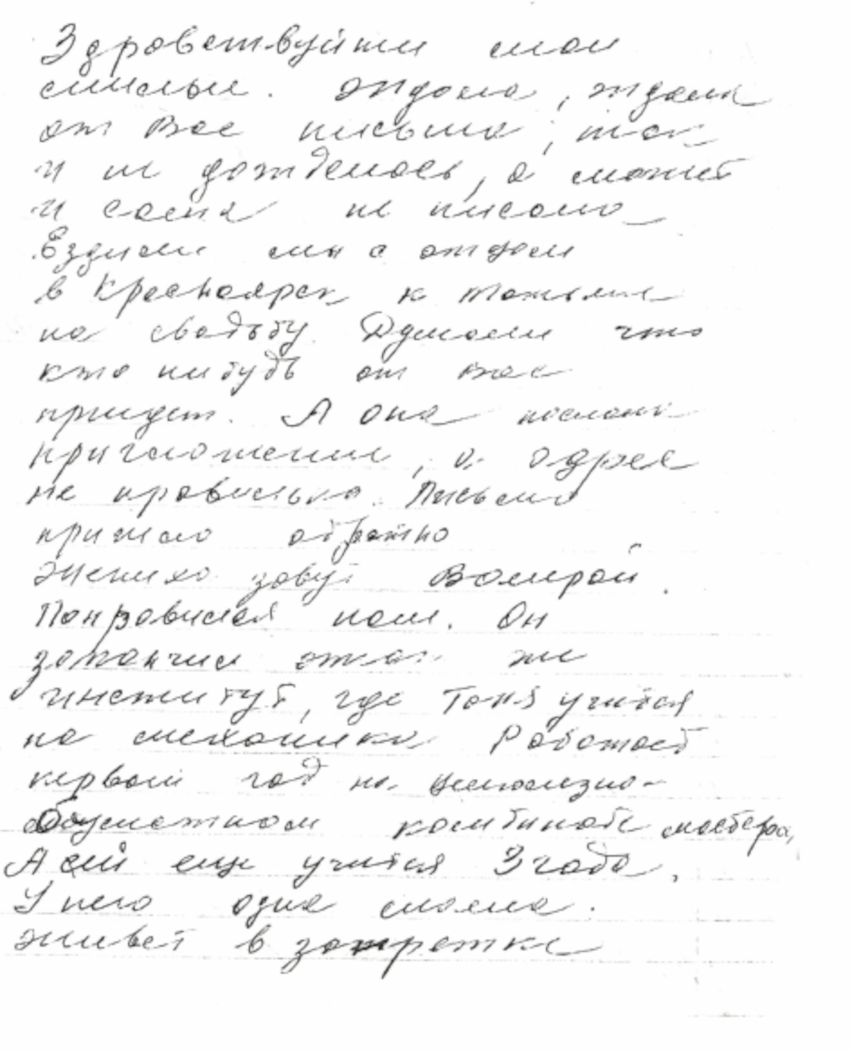 Здравствуйти мои
милыи. Ждала, ждала
от Вас письма, так
и ни дождалась, а может
и сама ни писала
Ездили мы с отцом
в Красноярск к Тоньки
на свадьбу. Думали что
кто нибудь от вас
приидет. А она послала
приглашении, а адрес
не правильно. Письмо
пришло обратно
Жениха зовут Валерой.
Понравился нам. Он
закончил этот же
институт, где Тоня учится
на механика. Работает
первый год на целлюлозно-
бумажном комбинате мастером,
А ей еще учится 3 года.
У него одна мама.
живет в заперетки